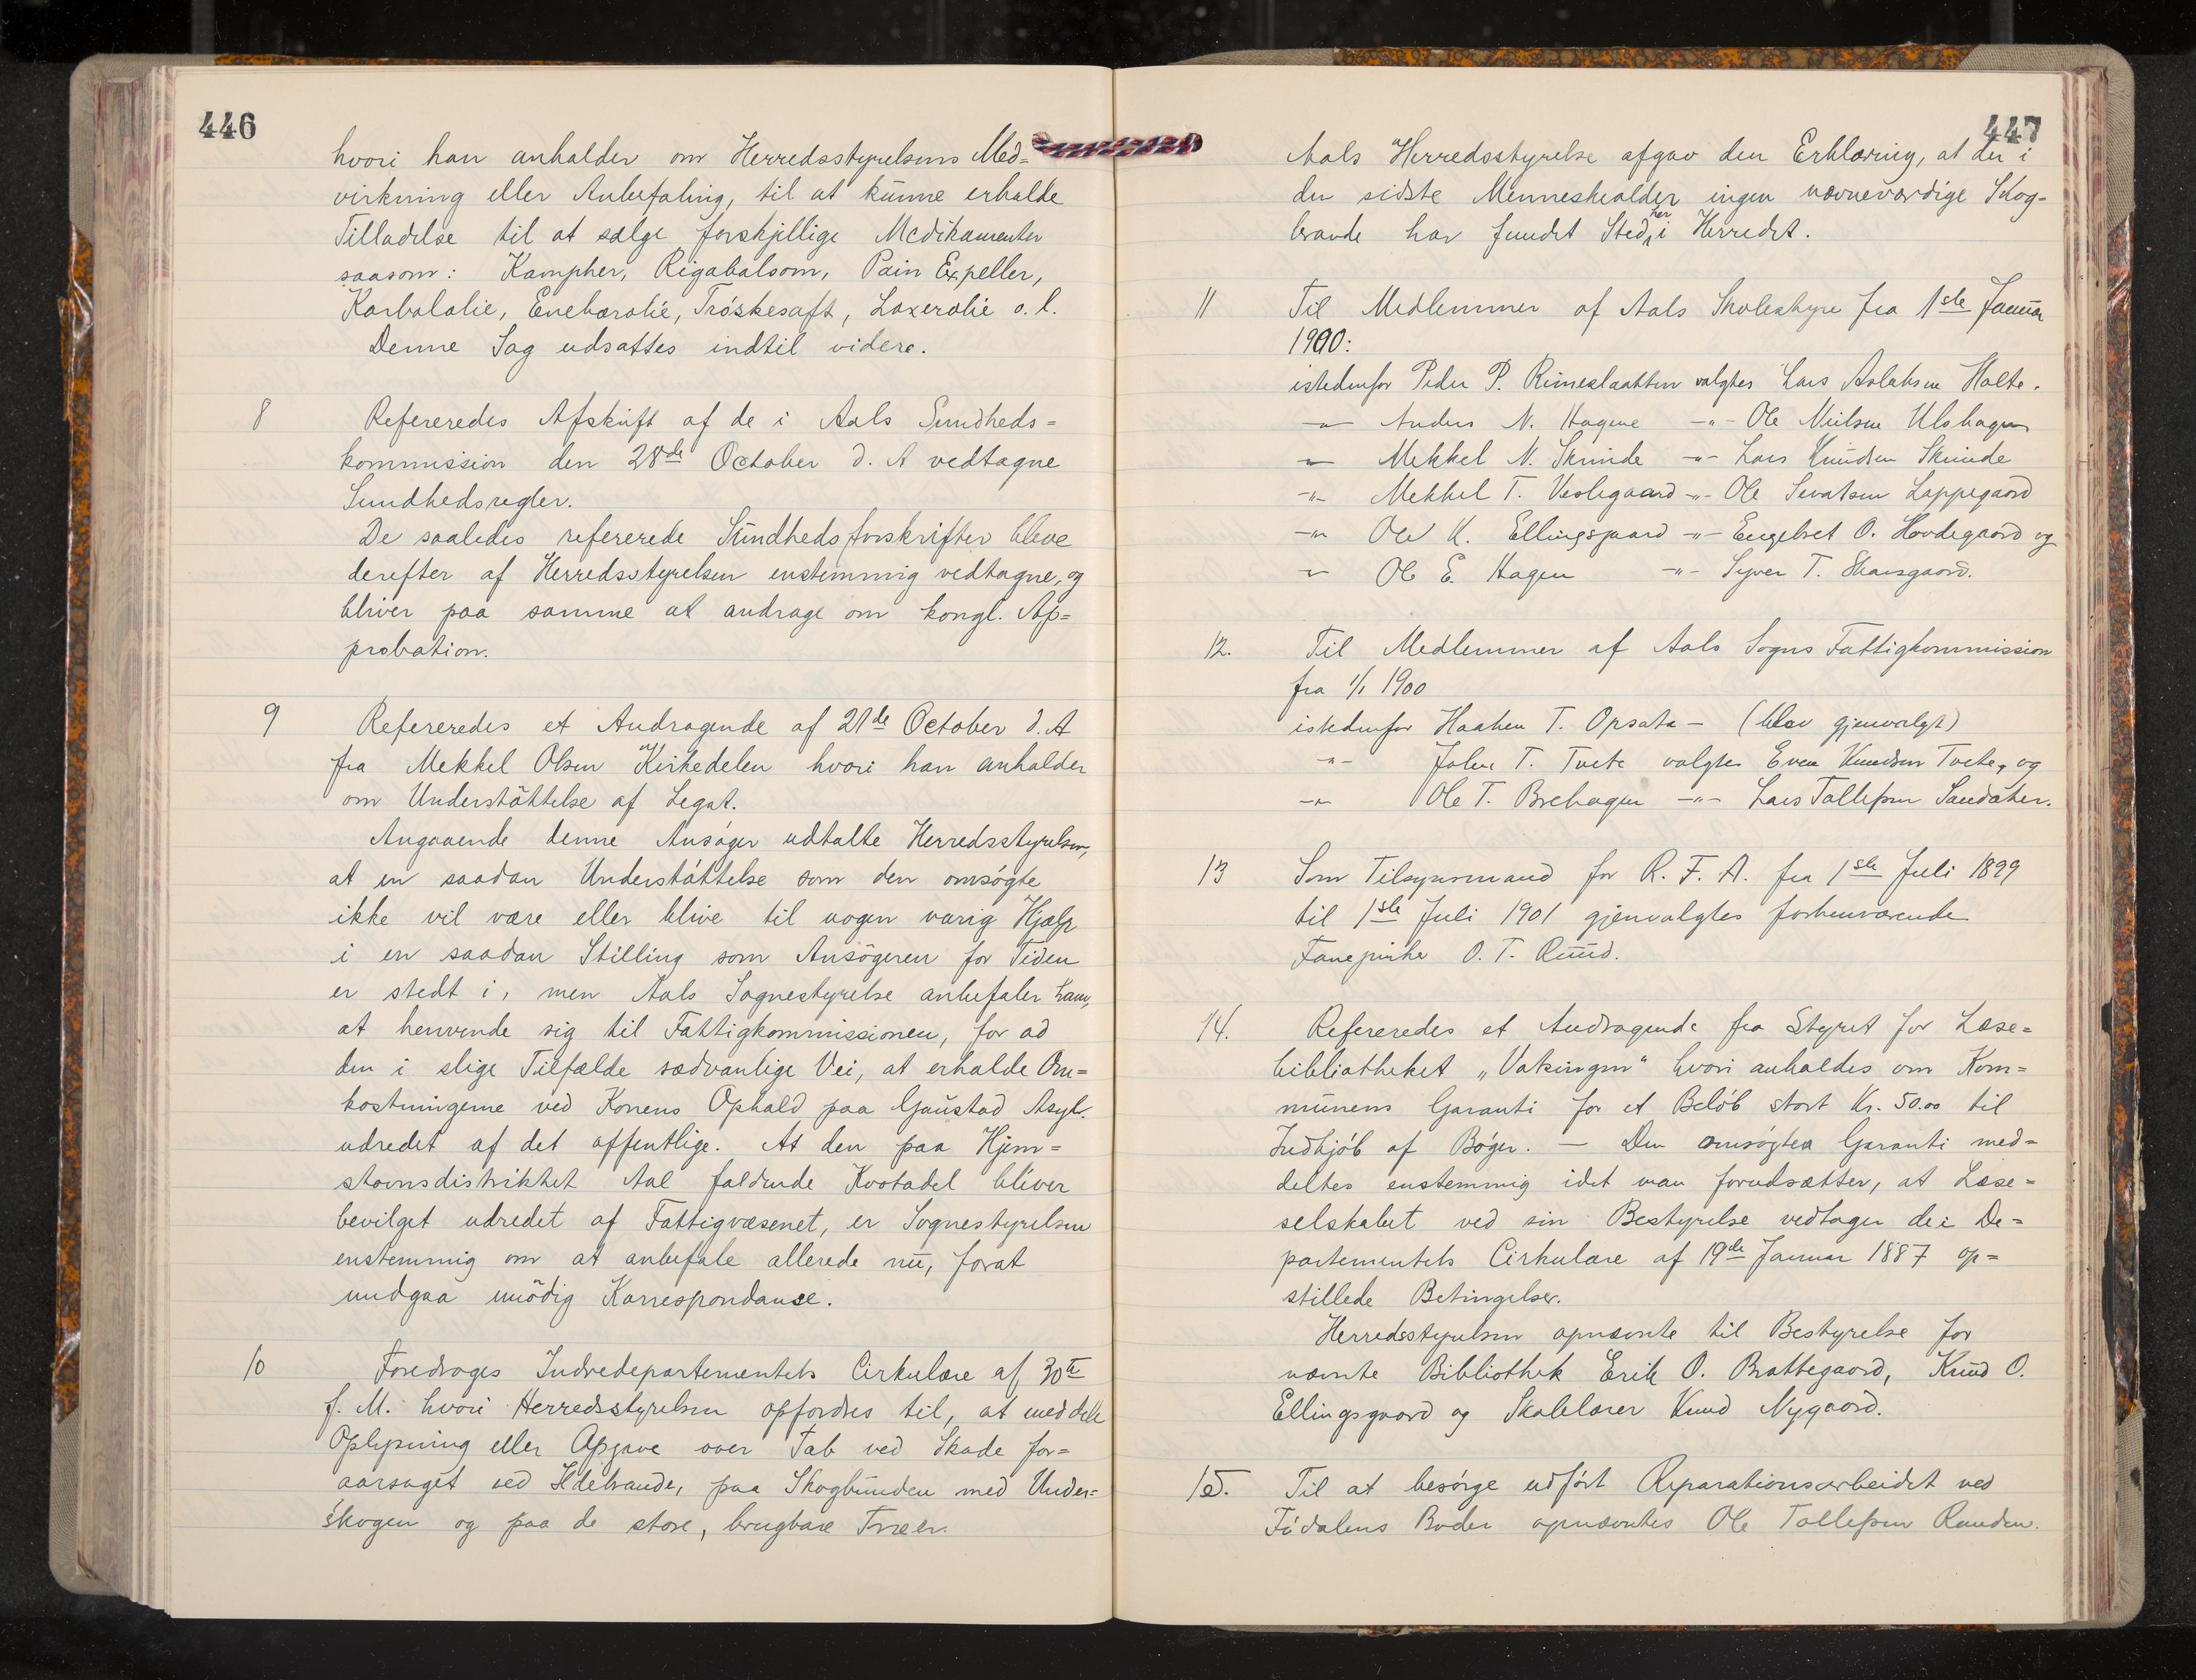 446
hvori han anholder om Herredsstyrelsens Med=
virkning eller Anbefaling, til at kunne erholde
Tilladelse til at sælge forskjellige Medikamenter
saasom: Kampher, Rigabalsom, Pain Expeller,
Karbololie, Enebærolie, Tröskesaft, Laxerolie o. l.
Denne Sag udsattes indtil videre.
8 Refereredes Afskrift af de i Aals Sundheds=
kommission den 28de October d. A vedtagne
Sundhedsregler.
De saaledes refererede Sundhedsforskrifter bleve
derefter af Herredsstyrelsen enstemmig vedtagne, og
bliver paa samme at andrage om kongl. Ap=
probation.
9 Refereredes et Andragende af 21de October d. A
fra Mekkel Olsen Kirkedelen hvori han anholder
om Understöttelse af Legat.
Angaaende denne Ansöger udtalte Herredsstyrelsen,
at en saadan Understöttelse som den omsögte
ikke vil være eller blive til nogen varig Hjælp
i en saadan Stilling som Ansögeren for Tiden
er stedt i, men Aals Sognestyrelse anbefaler ham,
at henvende sig til Fattigkommissionen, for ad
den i slige Tilfælde sædvanlige Vei, at erholde Om=
kostningerne ved Konens Ophold paa Gaustad Asyl.
udredet af det offentlige. At den paa Hjem=
stavnsdistriktet Aal faldende Kvotadel bliver
bevilget udredet af Fattigvæsenet, er Sognestyrelsen
enstemmig om at anbefale allerede nu, forat
undgaa unödig Korrespondanse.
10 Foredroges Indredepartementets Cirkulære af 30te
f. M. hvori Herredsstyrelsen opfordres til, at meddele
Oplysning eller Opgave over Tab ved Skade for=
aarsaget ved Ildebrande, paa Skogbunden med Under=
skogen og paa de store, brugbare Træer.
447
Aals Herredsstyrelse afgav den Erklæring, at der i
den sidste Menneskealder ingen nævneværdige Skog-
brande har fundet Sted her i Herredet.
11 Til Medlemmer af Aals Skolestyre fra 1ste Januar
1900:
istedenfor Peder P. Rimeslaatten valgtes Lars Aslaksen Holte.
-"- Anders N. Hagene -"- Ole Nielsen Ulshagen
-"- Mekkel N. Skrinde -"- Lars Knudsen Skrinde
-"- Mekkel T. Veslegaard -"- Ole Sevatsen Lappegaard
-"- Ole K. Ellingsgaard -"- Engebret O. Hovdegaard og
-"- Ole E. Hagen -"- Syver T. Skarsgaard.
12. Til Medlemmer af Aals Sogns Fattigkommission
fra 1/1 1900
istedenfor Haaken T. Opsata - (blev gjenvalgt)
-"- John T. Tvete valgtes Even Knudsen Tvete, og
-"- Ole T. Brehagen -"- Lars Tollefsen Sandaker.
13 Som Tilsynsmand for R. F. A. fra 1ste Juli 1899
til 1ste Juli 1901 gjenvalgtes forhenværende
Fanejunker O. T. Ruud.
14. Refereredes et Andragende fra Styret for Læse=
bibliotheket „Vakingen“ hvori anholdes om Kom=
munens Garanti for et Belöb stort Kr. 50.00 til
Indkjöb af Böger. — Den omsögte Garanti med=
deltes enstemmig idet man forudsætter, at Læse=
selskabet ved sin Bestyrelse vedtager de i De=
partementets Cirkulære af 19de Januar 1887 op=
stillede Betingelser.
Herredsstyrelsen opnævnte til Bestyrelse for
nævnte Bibliothek Erik O. Brattegaard, Knud O.
Ellingsgaard og Skolelærer Knud Nygaard.
15. Til at besörge udfört Reparationsarbeidet ved
Födalens Boder opnævntes Ole Tollefsen Randen.